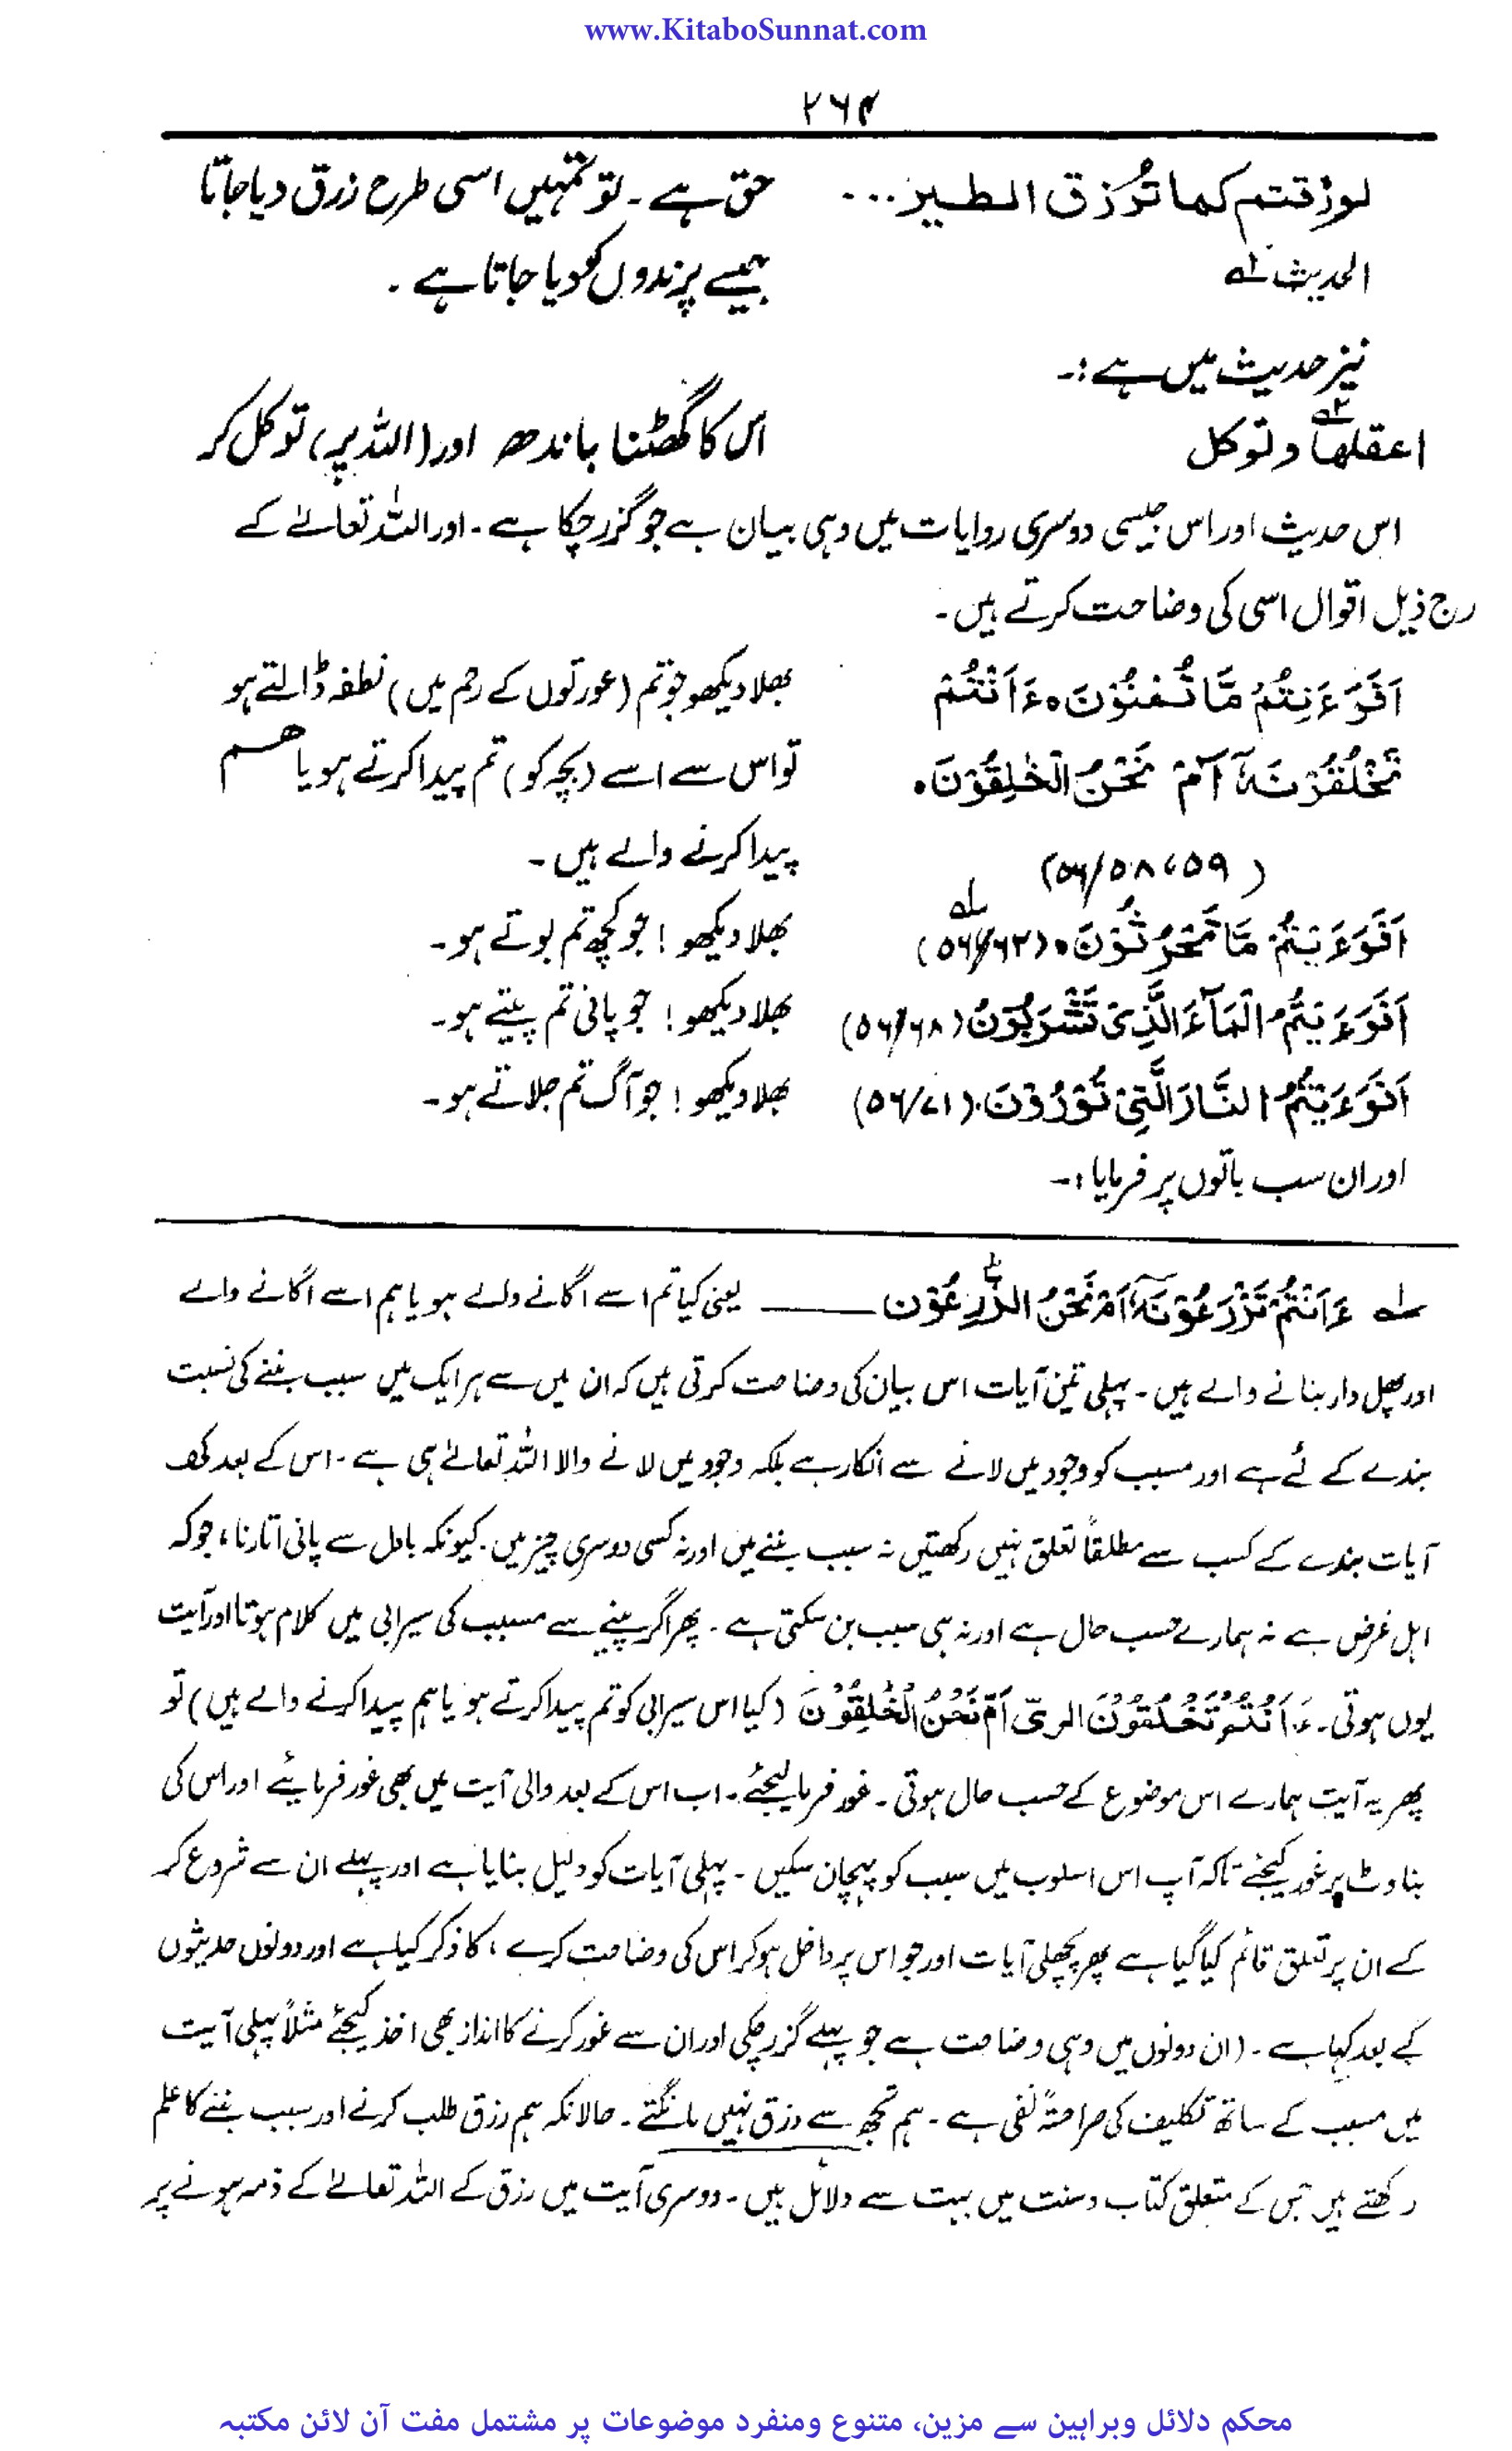 www.KitaboSunnat.com
۲۶۴
لورُزقتم كما تُرزق الطير... حق ہے ۔ تو تمہیں اسی طرح رزق دیا جاتا
الحدیث لہ جیسے پرندوں کو دیا جاتا ہے ۔
نیز حدیث میں ہے :۔
اعقلها وتوكل اس کا گھٹنا باندھ اور (اللہ پر) توکل کر
اس حدیث اور اس جیسی دوسری روایات میں وہی بیان ہے جو گزر چکا ہے ۔ اور اللہ تعالےٰ کے
رج ذیل اقوال اسی کی وضاحت کرتے ہیں ۔
اَفَرَءَيْتُمْ مَّا تُمْنُوْنَ ہ ءَاَنْتُمْ بھلا دیکھو جو تم (عورتوں کے رحم میں) نطفہ ڈالتے ہو
تَخْلُقُوْنَہٗ اَمْ نَحْنُ الْخٰلِقُوْنَ ہ تو اس سے اسے (بچہ کو) تم پیدا کرتے ہو یا ھم
(۵۶/۵۸،۵۹) پیدا کرنے والے ہیں ۔
اَفَرَءَيْتُمْ مَّا تَحْرُثُوْنَ ہ (۵۶/۶۳) لہ بھلا دیکھو ! جو کچھ تم بوتے ہو ۔
اَفَرَءَيْتُمُ الْمَآءَ الَّذِیْ تَشْرَبُوْنَ (۵۶/۶۸) بھلا دیکھو ! جو پانی تم پیتے ہو ۔
اَفَرَءَيْتُمُ النَّارَ الَّتِیْ تُوْرُوْنَ ۔ (۵۶/۷۱) بھلا دیکھو ! جو آگ تم جلاتے ہو ۔
اور ان سب باتوں پر فرمایا :۔
لہ ءَاَنْتُمْ تَزْرَعُوْنَہٗ اَمْ نَحْنُ الزّٰرِعُوْن ـــــ یعنی کیا تم اسے اگانے والے ہو یا ہم اسے اگانے والے
اور پھل دار بنانے والے ہیں ۔ پہلی تین آیات اس بیان کی وضاحت کرتی ہیں کہ ان میں سے ہر ایک میں سبب بننے کی نسبت
بندے کے لئے ہے اور مسبب کو وجود میں لانے سے انکار ہے بلکہ وجود میں لانے والا اللہ تعالےٰ ہی ہے ۔ اس کے بعد کی
آیات بندے کے کسب سے مطلقاً تعلق نہیں رکھتیں نہ سبب بننے میں اور نہ کسی دوسری چیز میں ۔ کیونکہ بادل سے پانی اتارنا ، جو کہ
اہل غرض ہے نہ ہمارے حسب حال ہے اور نہ ہی سبب بن سکتی ہے ۔ پھر اگر پینے سے مسبب کی سیرابی میں کلام ہوتا اور آیت
یوں ہوتی ۔ ءَاَنْتُمْ تَخْلُقُوْنَ الریّ اَمْ نَحْنُ الْخٰلِقُوْنَ (کیا اس سیرابی کو تم پیدا کرتے ہو یا ہم پیدا کرنے والے ہیں) تو
پھر یہ آیت ہمارے اس موضوع کے حسب حال ہوتی ۔ غور فرما لیجئے ۔ اب اس کے بعد والی آیت میں بھی غور فرمایئے اور اس کی
بناوٹ پر غور کیجئے تاکہ آپ اس اسلوب میں سبب کو پہچان سکیں ۔ پہلی آیات کو دلیل بنایا ہے اور پہلے ان سے شروع کر
کے ان پر تعلق قائم کیا گیا ہے پھر پچھلی آیات اور جو اس پر داخل ہو کر اس کی وضاحت کرے ، کا ذکر کیا ہے اور دونوں حدیثوں
کے بعد کہا ہے ۔ (ان دونوں میں وہی وضاحت ہے جو پہلے گزر چکی اور ان سے غور کرنے کا انداز بھی اخذ کیجئے مثلاً پہلی آیت
میں مسبب کے ساتھ تکلیف کی صراحتہً نفی ہے ۔ ہم تجھ سے رزق نہیں مانگتے ۔ حالانکہ ہم رزق طلب کرنے اور سبب بننے کا علم
رکھتے ہیں جس کے متعلق کتاب و سنت میں بہت سے دلائل ہیں ۔ دوسری آیت میں رزق کے اللہ تعالےٰ کے ذمہ ہونے پر
محکم دلائل وبراہین سے مزین، متنوع ومنفرد موضوعات پر مشتمل مفت آن لائن مکتبہ